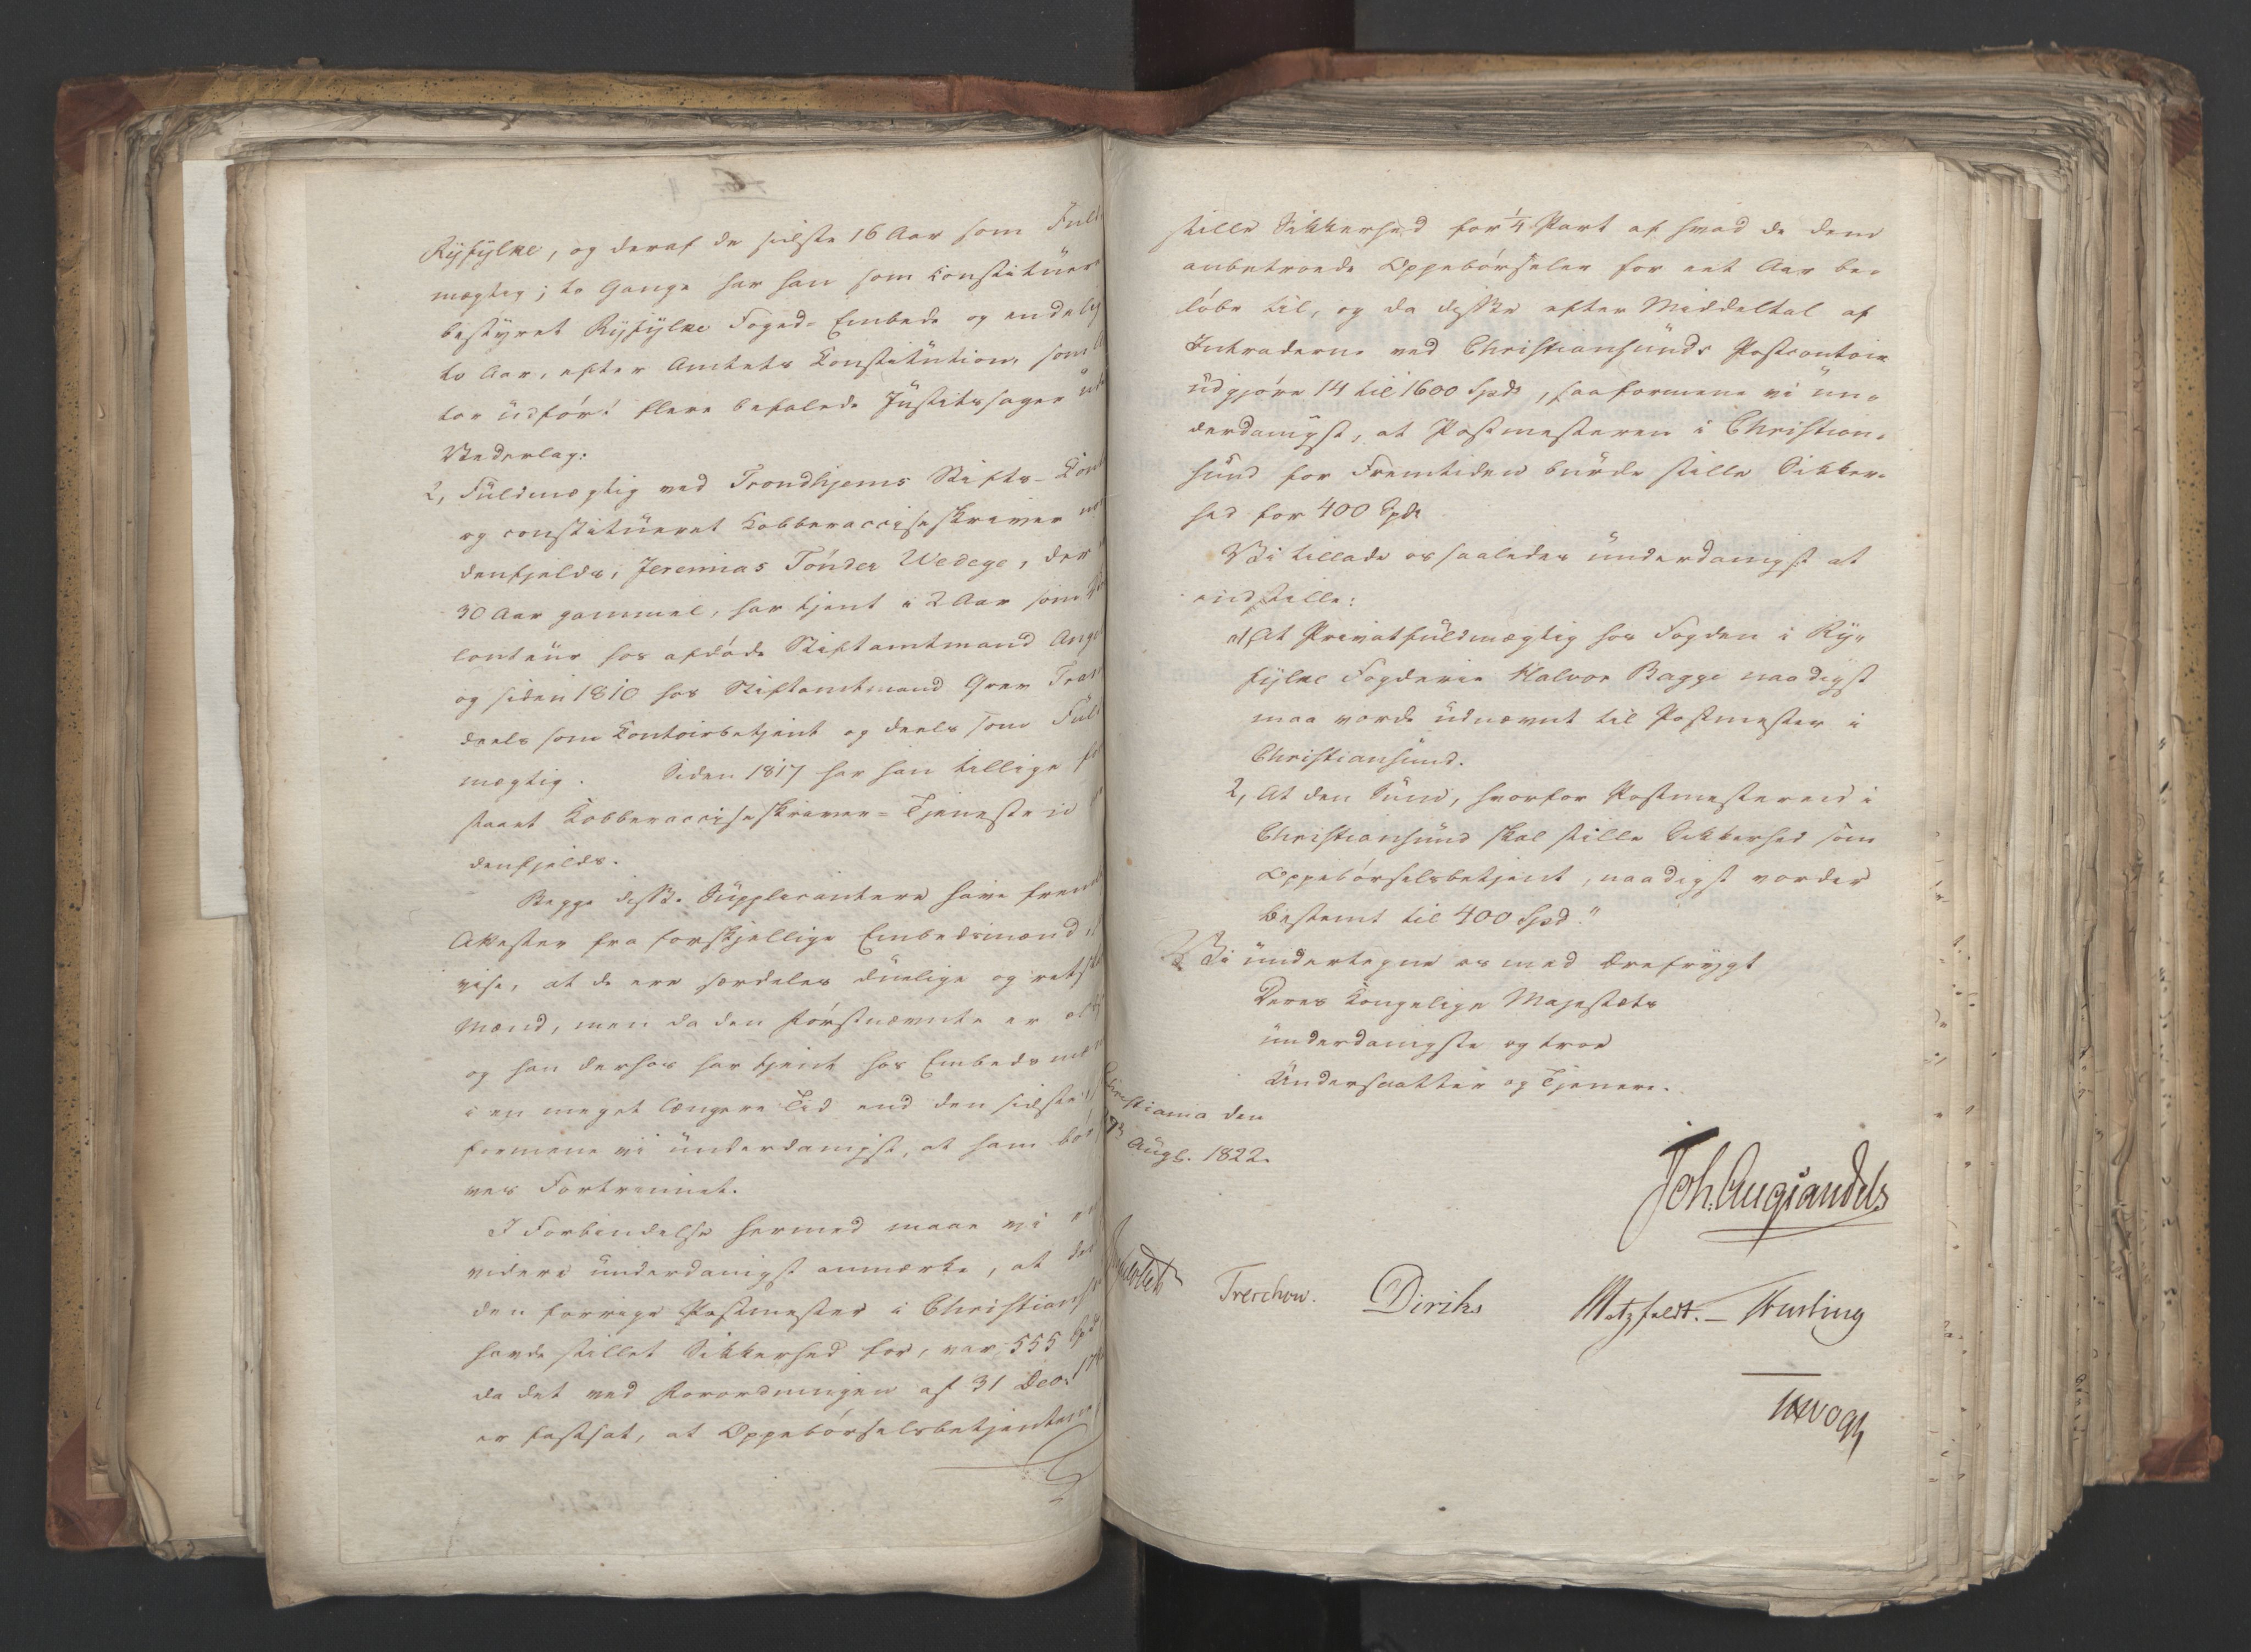 Ryfylke, og deraf de sidste 16 Aar som Fuld
mægtig; to Gange har han som Constitueret
bestyret Ryfylke Foged-Embede og endelig
to Aar, efter Amtets Constitution, som
tor udført flere befalede Justitssager uden
Vederlag.
2, Fuldmægtig ved Trondhjems Stifts-Cont
og constitueret Kobberacciseskriver nor
denfjelds, Jeremias Tønder Wedege, der
30 Aar gammel, har tjent i 2 Aar som
lonteur hos afdøde Stiftamtmand Ange
og siden 1810 hos Stiftamtmand Grev Tram
deels som Contoirbetjent og deels som Fuld
mægtig. Siden 1817 har han tillige fore
staaet Kobberacciseskriver-Tjenesten
denfjelds.
Begge disse Supplicantere have frem
Attester fra forskjellige Embedsmænd
vise, at de ere særdeles duelige og retsk
Mænd, men da den førstnævnte er ældst
og han derhos har tjent hos Embedsmæn
i en meget længere Tid end den sidste
formene vi underdanigst, at ham bør
ves Fortrinnet.
I Forbindelse hermed maae vi
videre underdanigst anmærke, at det
den forrige Postmester i Christians
havde stillet Sikkerhed for, var 555 Spd
da det ved Forordningen af 31 Decr 17
er fastsat, at Oppebørselsbetjentene
stille Sikkerhed for 1/4 Part af hvad de dem
anbetroede Oppebørseler for eet Aar be-
løbe til, og da disse efter Middeltal af
Intraderne ved Christiansunds Postcontoir
udgjøre 14 til 1600 Spd, saa formene vi un-
derdanigst, at Postmesteren i Christian-
sund for Fremtiden burde stille Sikker-
hed for 400 Spd.
Vi tillade os saaledes underdanigst at
indstille:
"1, At Privatfuldmægtig hos Fogden i Ry-
fylke Fogderie Halvor Bagge naadigst
maa vorde udnævnt til Postmester i
Christiansund.
2, At den Sum, hvorfor Postmesteren i
Christiansund skal stille Sikkerhed som
Oppebørselsbetjent, naadigst vorder
bestemt til 400 Spd."
Vi undertegne os med Ærefrygt
Deres Kongelige Majestæts
underdanigste og troe
Undersaatter og Tjenere.
Christiania den
17 Augs. 1822.
Joh. Aug. Sandels
Treschow. Diriks Motzfeldt. Krusing
Vogt